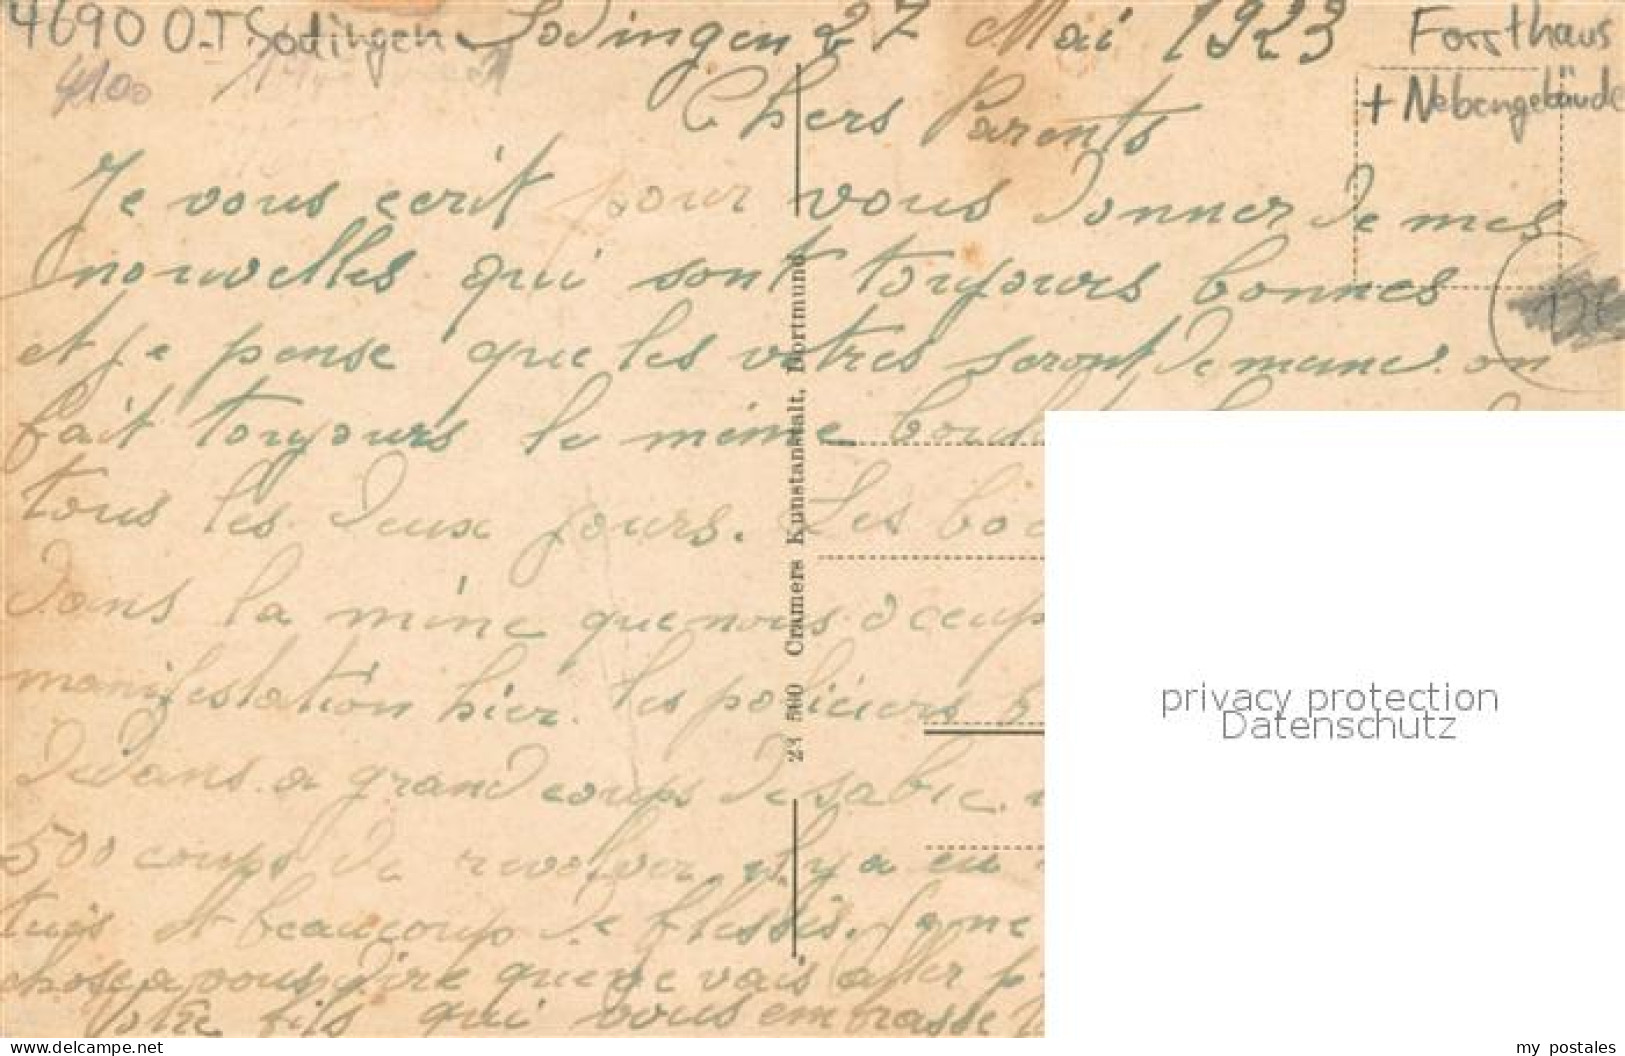 4690 O.-T Sodingen
4100
Forsthaus
+ Nebengebäude
Sodingen 27 Mai 1923
Chers Parents
Je vous ecrit pour vous donner de mes
nouvelles qui sont toujours bonnes
et je pense que les votres seront de mame. on
fait toujours le même
tous les deux jours. Les
dans la mine que nous
manifestation hier. les policiers
dedans a grand coups de sabre.
500 coups de revolver. il y a eu
tuis et beaucoup de blessis.
chose a vous dire que je vais aller
Votre fils qui vous embrasse
23 500 Cramers Kunstanstalt, Dortmund
privacy protection
Datenschutz
www.delcampe.net
my_postales